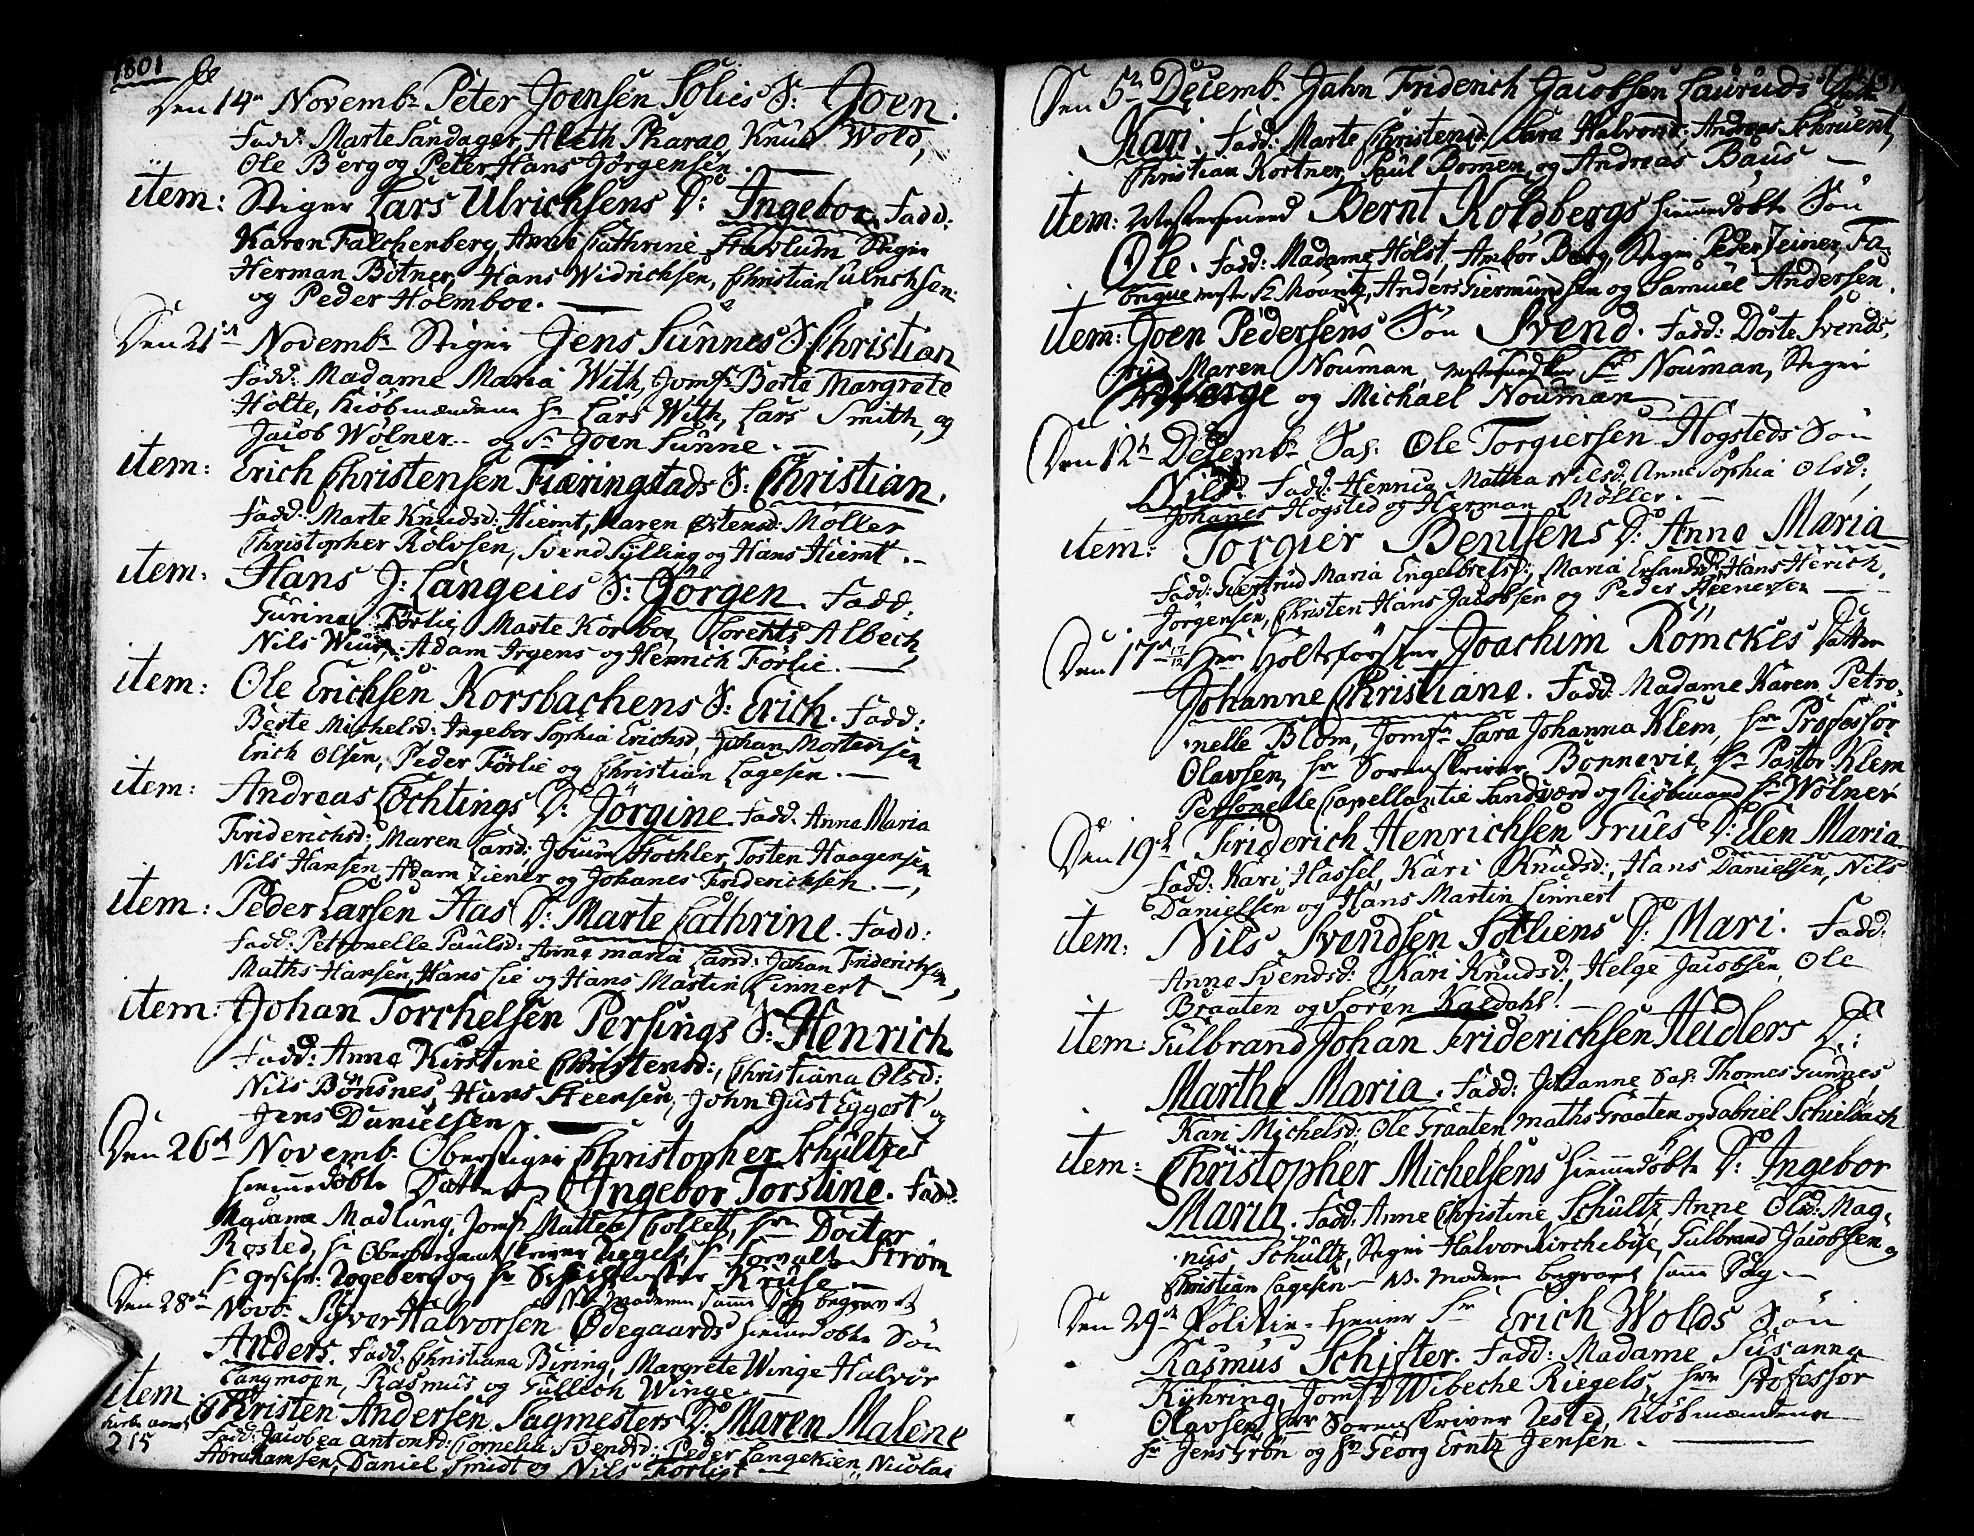 1801
Den 14de Novembr Peter Joensen Solies S: Joen.
Fadd: Marte Sandager, Aleth Pharao, Knud Wold,
Ole Berg og Peter Hans Jörgensen.
item: Stiger Lars Ulrichsens D: Ingebor. Fadd:
Karen Falchenberg, Anne Cathrine Stavlum Stiger
Herman Bötner, Hans Widrichsen, Christian Ulrichsen
og Peder Holmboe.
Den 21de Novembr Stiger Jens Sunnes S: Christian
Fadd: Madame Maria With, Jomfr Berte Margrete
Holte, Kiöbmændene Hr Lars With, Lars Smith, og
Jacob Wölner og Sr Joen Sunne.
item: Erich Christensen Fiæringstads S: Christian.
Fadd: Marte Knudsd: Hiemt, Maren Östensd: Möller
Christopher Rolvsen, Svend Sylling og Hans Hiemt.
item: Hans J: Langeies S: Jörgen. Fadd:
Gurine Förlie, Marte Korboe, Lorents Albech,
Nils Wiig, Adam Irgens og Henrich Förlie.
item: Ole Erichsen Korsbachens S: Erich. Fadd:
Berte Michelsd: Ingebor Sophia Erichsd, Johan Mortensen
Erich Olsen, Peder Förlie og Christian Lagesen.
item: Andreas Lochtings D: Jörgine. Fadd: Anne Maria
Friderichsd:, Maren Larsd: Fochler, Tosten Haagensen
Nils Hansen, Adam Ziener og Johanes Friderichsen.
item: Peder Larsen Aas D: Marte Cathrine. Fadd:
Fadd: Petronelle Paulsd: Anne Maria Larsd: Johan Friderichsen,
Maths Hansen, Hans Lie og Hans Martin Linnert
item: Johan Torchelsen Persings S: Henrich
Fadd: Anne Kirstine Christensd:, Christiana Olsd:
Nils Bönsnes, Hans Steensen, John Just Eggert og
Jens Danielsen
Den 26de Novemb. Oberstiger Christopher Schultzes
hiemedöbte Datter Ingebor Torstine. Fadd:
Madame Madlung, Jomfr Mattea Collett, Hr Doctor
Rosted, Hr Oberbergamtskriver Riegels, Hr Forvalt Ström
Hr Zogeberg og Hr Kruse
NB Moderen samme Dag begravet
Den 28de Novb. Syver Halvorsen Ödegaards hiemedöbte Sön
Anders. Fadd: Christiana Biring, Margrete Winge Halvor
Langmoen, Rasmus og Gullich Winge.
item Christen Andersen Sagmesters D: Maren Malene
215 Fadd: Jacobea Antonsd: Cornelia Svendsd: Peder Langekien, Nicolai
Abrahamsen, Daniel Smidt og Nils Förlist
Den 5te Decemb. Jahn Friderich Jacobsen Lauruds Datter
Kari. Fadd: Marte Christensd: Sara Halvorsd: Andreas Schruent,
Christian Kortner, Paul Bomen, og Andreas Baus
item: Mestersvend Bernt Koldbergs hiemmedöbte Sön
Ole. Fadd: Madame Holst, Ambor Berg, Stiger Peder Zeiner, Fa-
brique mester Sr Mouritz, Anders Giermundsen og Samuel Andersen.
item: Joen Pedersens Sön Svend. Fadd: Dorte Svends-
rud Maren Nouman Sr Nouman, Stiger
Hverge og Michael Nouman
Den 12te Decemb. Sal. Ole Torgiersen Hogsteds Sön
Nils. Fadd: Henrica Mattea Nilsd: Anne Sophia Olsd:
Johanes Hogsted og Herman Möller.
item: Torgier Bentsens D: Anne Maria
Fadd: Giertrud Maria Engelbretsd:, Maria Erlandsd: Hans Herich
Jörgensen, Christen Hans Jacobsen og Peder Steenersen
Den 17de 17/12 Herr Holtsförster Joachim Römckes Datter
Johanne Christiane. Fadd: Madame Karen Petro-
nelle Blom, Jomfr Sara Johanna Klem, Hr Professor
Olavsen, Hr Sorenskriver Bonnevie, Hr Pastor Klem
Personelle Capellan Lie Sandsværd og Kiöbmand Hr Wölner
Den 19de Friderich Henrichsen Grues D: Elen Maria
Fadd: Kari Hassel, Kari Knudsd:, Hans Danielsen, Nils
Danielsen og Hans Martin Linnert
item: Nils Svendsen Solliens D: Mari. Fadd:
Anne Svendsd: Kari Knudsd:, Helge Jacobsen, Ole
Braaten og Sören Kasdahl.
item: Gulbrand Johan Friderichsen Heidlers D:
Marthe Maria. Fadd: Johanne Sal: Thomes Gunnes
Kari Michelsd: Ole Graaten Maths Graaten og Gabriel Schielbach
item: Christopher Michelsens hiemmedöbte D: Ingebor
Maria. Fadd: Anne Christine Schultz, Anne Olsd: Mag-
nus Schultz, Stiger Halvor Kirchebye, Gulbrand Jacobsen og
Christian Lagesen NB. Moderen begravet samme Dag
Den 29de Politie-tiener Sr Erich Wolds Sön
Rasmus Schifter. Fadd: Madame Susanna
Kyhring, Jomfr Wibeche Riegels, Herr Professor
Olavsen, Herr Sorenskriver Zested, Kiöbmændene
Hr Jens Grön og Hr Georg Erntz Jensen.